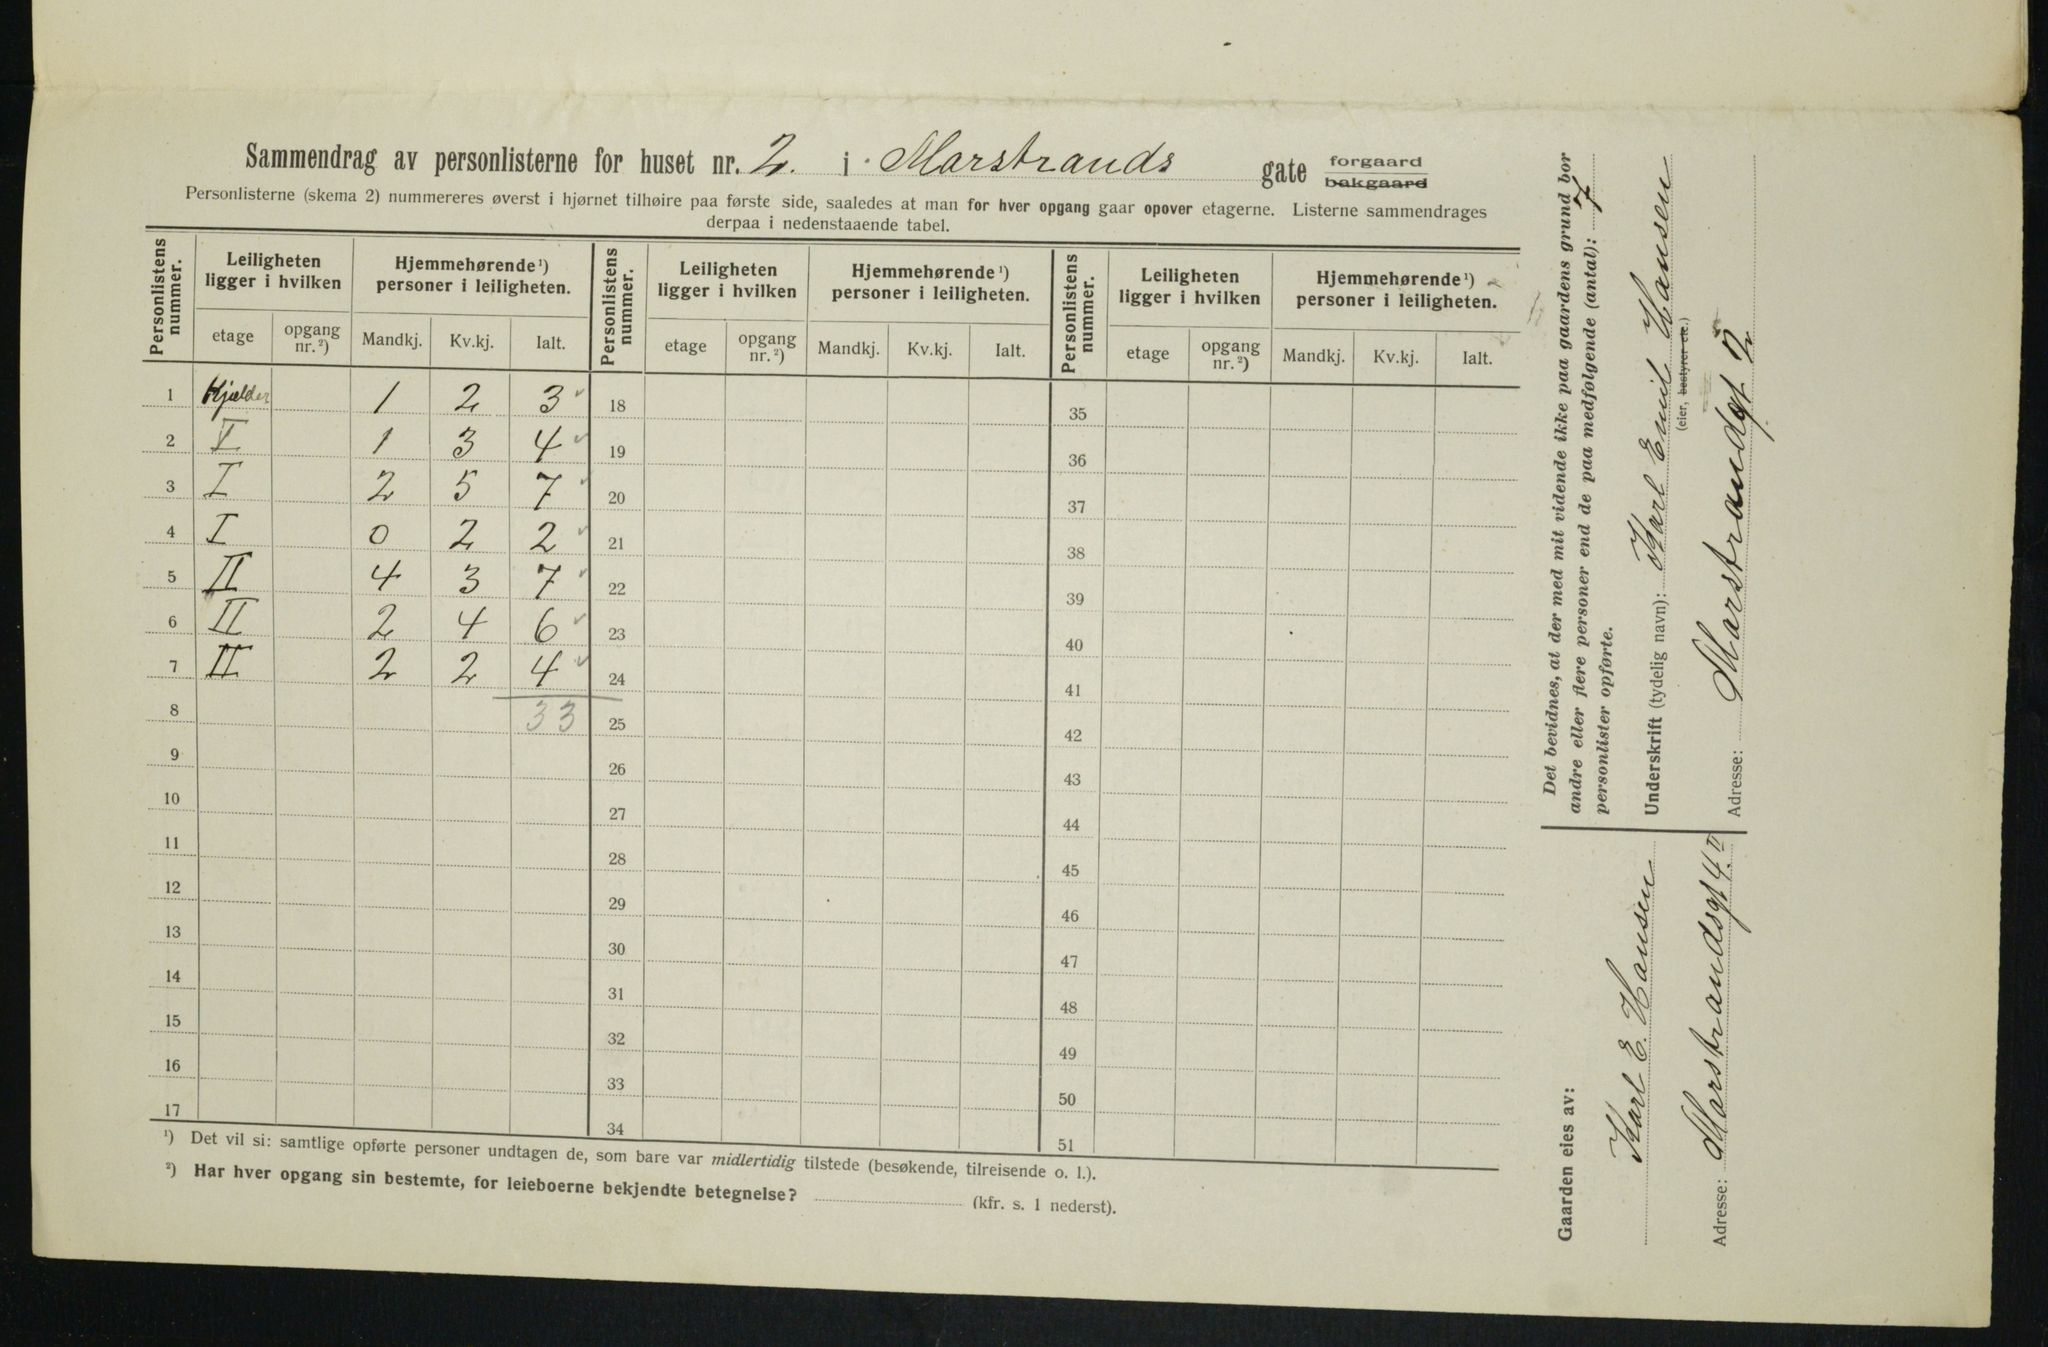 Sammendrag av personlisterne for huset nr. 2. i Marstrands gate forgaard bakgaard
Personlisterne (skema 2) nummereres øverst i hjørnet tilhøire paa første side, saaledes at man for hver opgang gaar opover etagerne. Listerne sammendrages
derpaa i nedenstaaende tabel.
Personlistens nummer. Leiligheten ligger i hvilken Hjemmehørende ¹) personer i leiligheten. Personlistens nummer. Leiligheten ligger i hvilken Hjemmehørende ¹) personer i leiligheten. Personlistens nummer. Leiligheten ligger i hvilken Hjemmehørende ¹) personer i leiligheten.
etage opgang nr. ²) Mandkj. Kv.kj. Ialt. etage opgang nr. ²) Mandkj. Kv.kj. Ialt. etage opgang nr. ²) Mandkj. Kv.kj. Ialt.
1 Kjelder 1 2 3 18 35
2 I 1 3 4 19 36
3 I 2 5 7 20 37
4 I 0 2 2 21 38
5 II 4 3 7 22 39
6 II 2 4 6 23 40
7 II 2 2 4 24 41
8 33 25 42
9 26 43
10 27 44
11 28 45
12 29 46
13 30 47
14 31 48
15 32 49
16 33 50
17 34 51
¹) Det vil si: samtlige opførte personer undtagen de, som bare var midlertidig tilstede (besøkende, tilreisende o. l.).
²) Har hver opgang sin bestemte, for leieboerne bekjendte betegnelse? (kfr. s. 1 nederst).
Det bevidnes, at der med mit vidende ikke paa gaardens grund bor
andre eller flere personer end de paa medfølgende (antal): 7
personlister opførte.
Underskrift (tydelig navn): Karl Emil Hansen
(eier, bestyrer etc.)
Adresse: Marstrandsgt 2
Gaarden eies av:
Karl E. Hansen
Adresse: Marstrandsgt 4. II